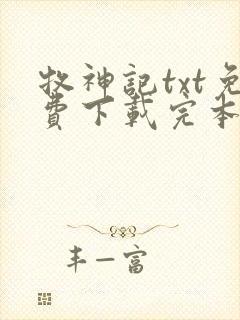 牧神記txt免
費下載完本
丰一富